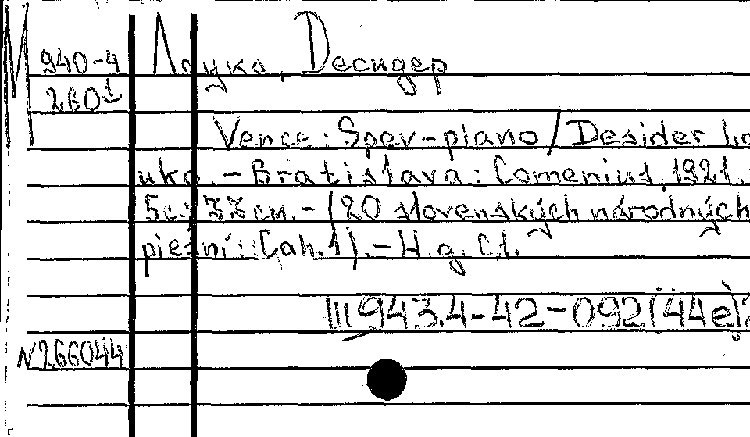 М 940-4 Лаука, Десидер
260-1
Vence: Spev-piano / Desider La
uka. - Bratislava: Comenius, 1921.
5c.; 33 см. - (20 slovenských národných
piesní: Čah. 1). - Н. д. С1.
III 943.4-42-092(44е)
N266044